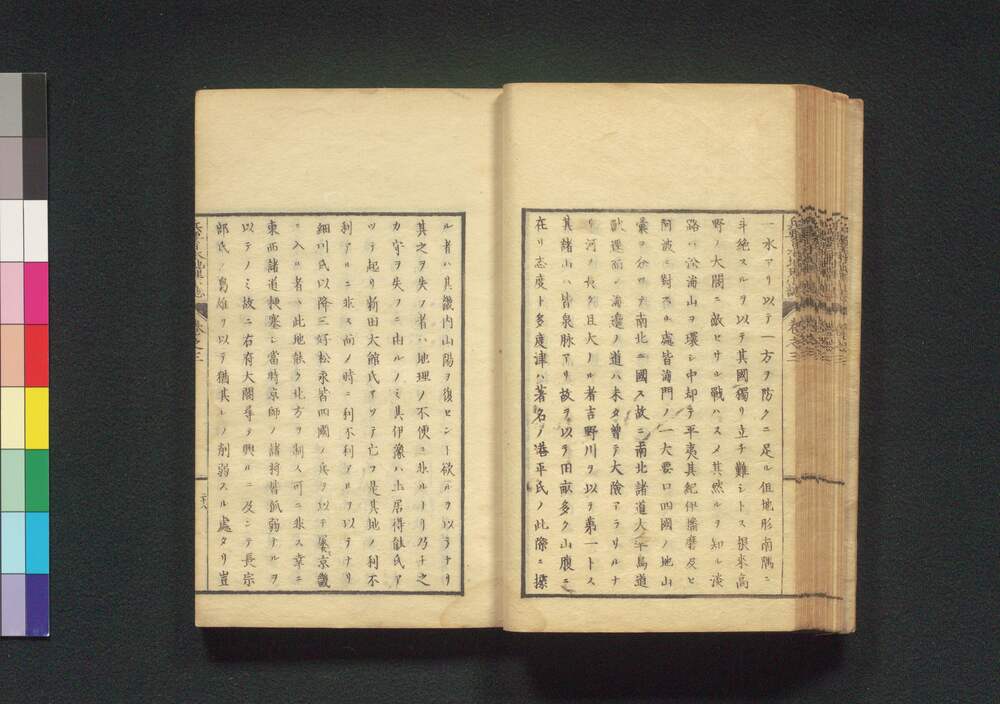 一水アリ以テ一方ヲ防クニ足ル但地形南隅ニ
斗絶スルヲ以テ其國獨リ立チ難シトス根來高
野ノ大閤ニ敵ヒサル戰ハスメ其然ルヲ知ル淡
路ハ沿海山ヲ環シ中却テ平夷其紀伊播磨及ヒ
阿波ニ對スル處皆海門ノ一大要口四國ノ地山
嶺ヲ分ツテ南北二國ス故ニ南北諸道大率鳥道
海邊ノ道ハ未タ曾テ大險アラサルナ
リ河ノ長ク且大ナル者吉野川ヲ以テ第一トス
其諸山ハ皆泉脉アリ故ヲ以テ田畝多ク山腹ニ
在リ志度ト多度津ハ著名ノ港平氏ノ此際ニ據
ル者ハ其畿内山陽ヲ復センヿ欲ルヲ以テナリ
其之ヲ失フ者ハ地理ノ不便ニ非ルナリ乃チ之
カ守ヲ失フニ由ルノミ其伊豫ハ土居得能氏ア
ツテ起リ新田大館氏アツテ亡フ是其地ノ利不
利アルニ非ス尚ノ時ニ利不利アルヲ以テナリ
細川氏以降三好松永皆四國ノ兵ヲ以テ屢京畿
ニ入ル者ハ此地能ク北方ヲ制ス可ニ非ス幸ニ
東西諸道梗塞シ當時京師ノ諸將皆孤弱ナルヲ
以テノミ故ニ右府大閤尋テ興ルニ及ンテ長宗
郎氏ノ驍雄ヲ以テ猶其レノ削弱スル處タリ豈
卷之三